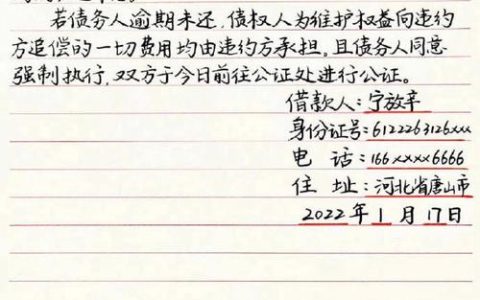 若债务人逾期未还,债权人为维护权益向违约
方追偿的一切费用均由违约方承担,且债务人同意
强制执行,双方于今日前往公证处进行公证。
借款人:宁放辛
身份证号:6122263126xxx
电 话:166xxxx6666
住 址:河北省唐山市
2022年1月17日